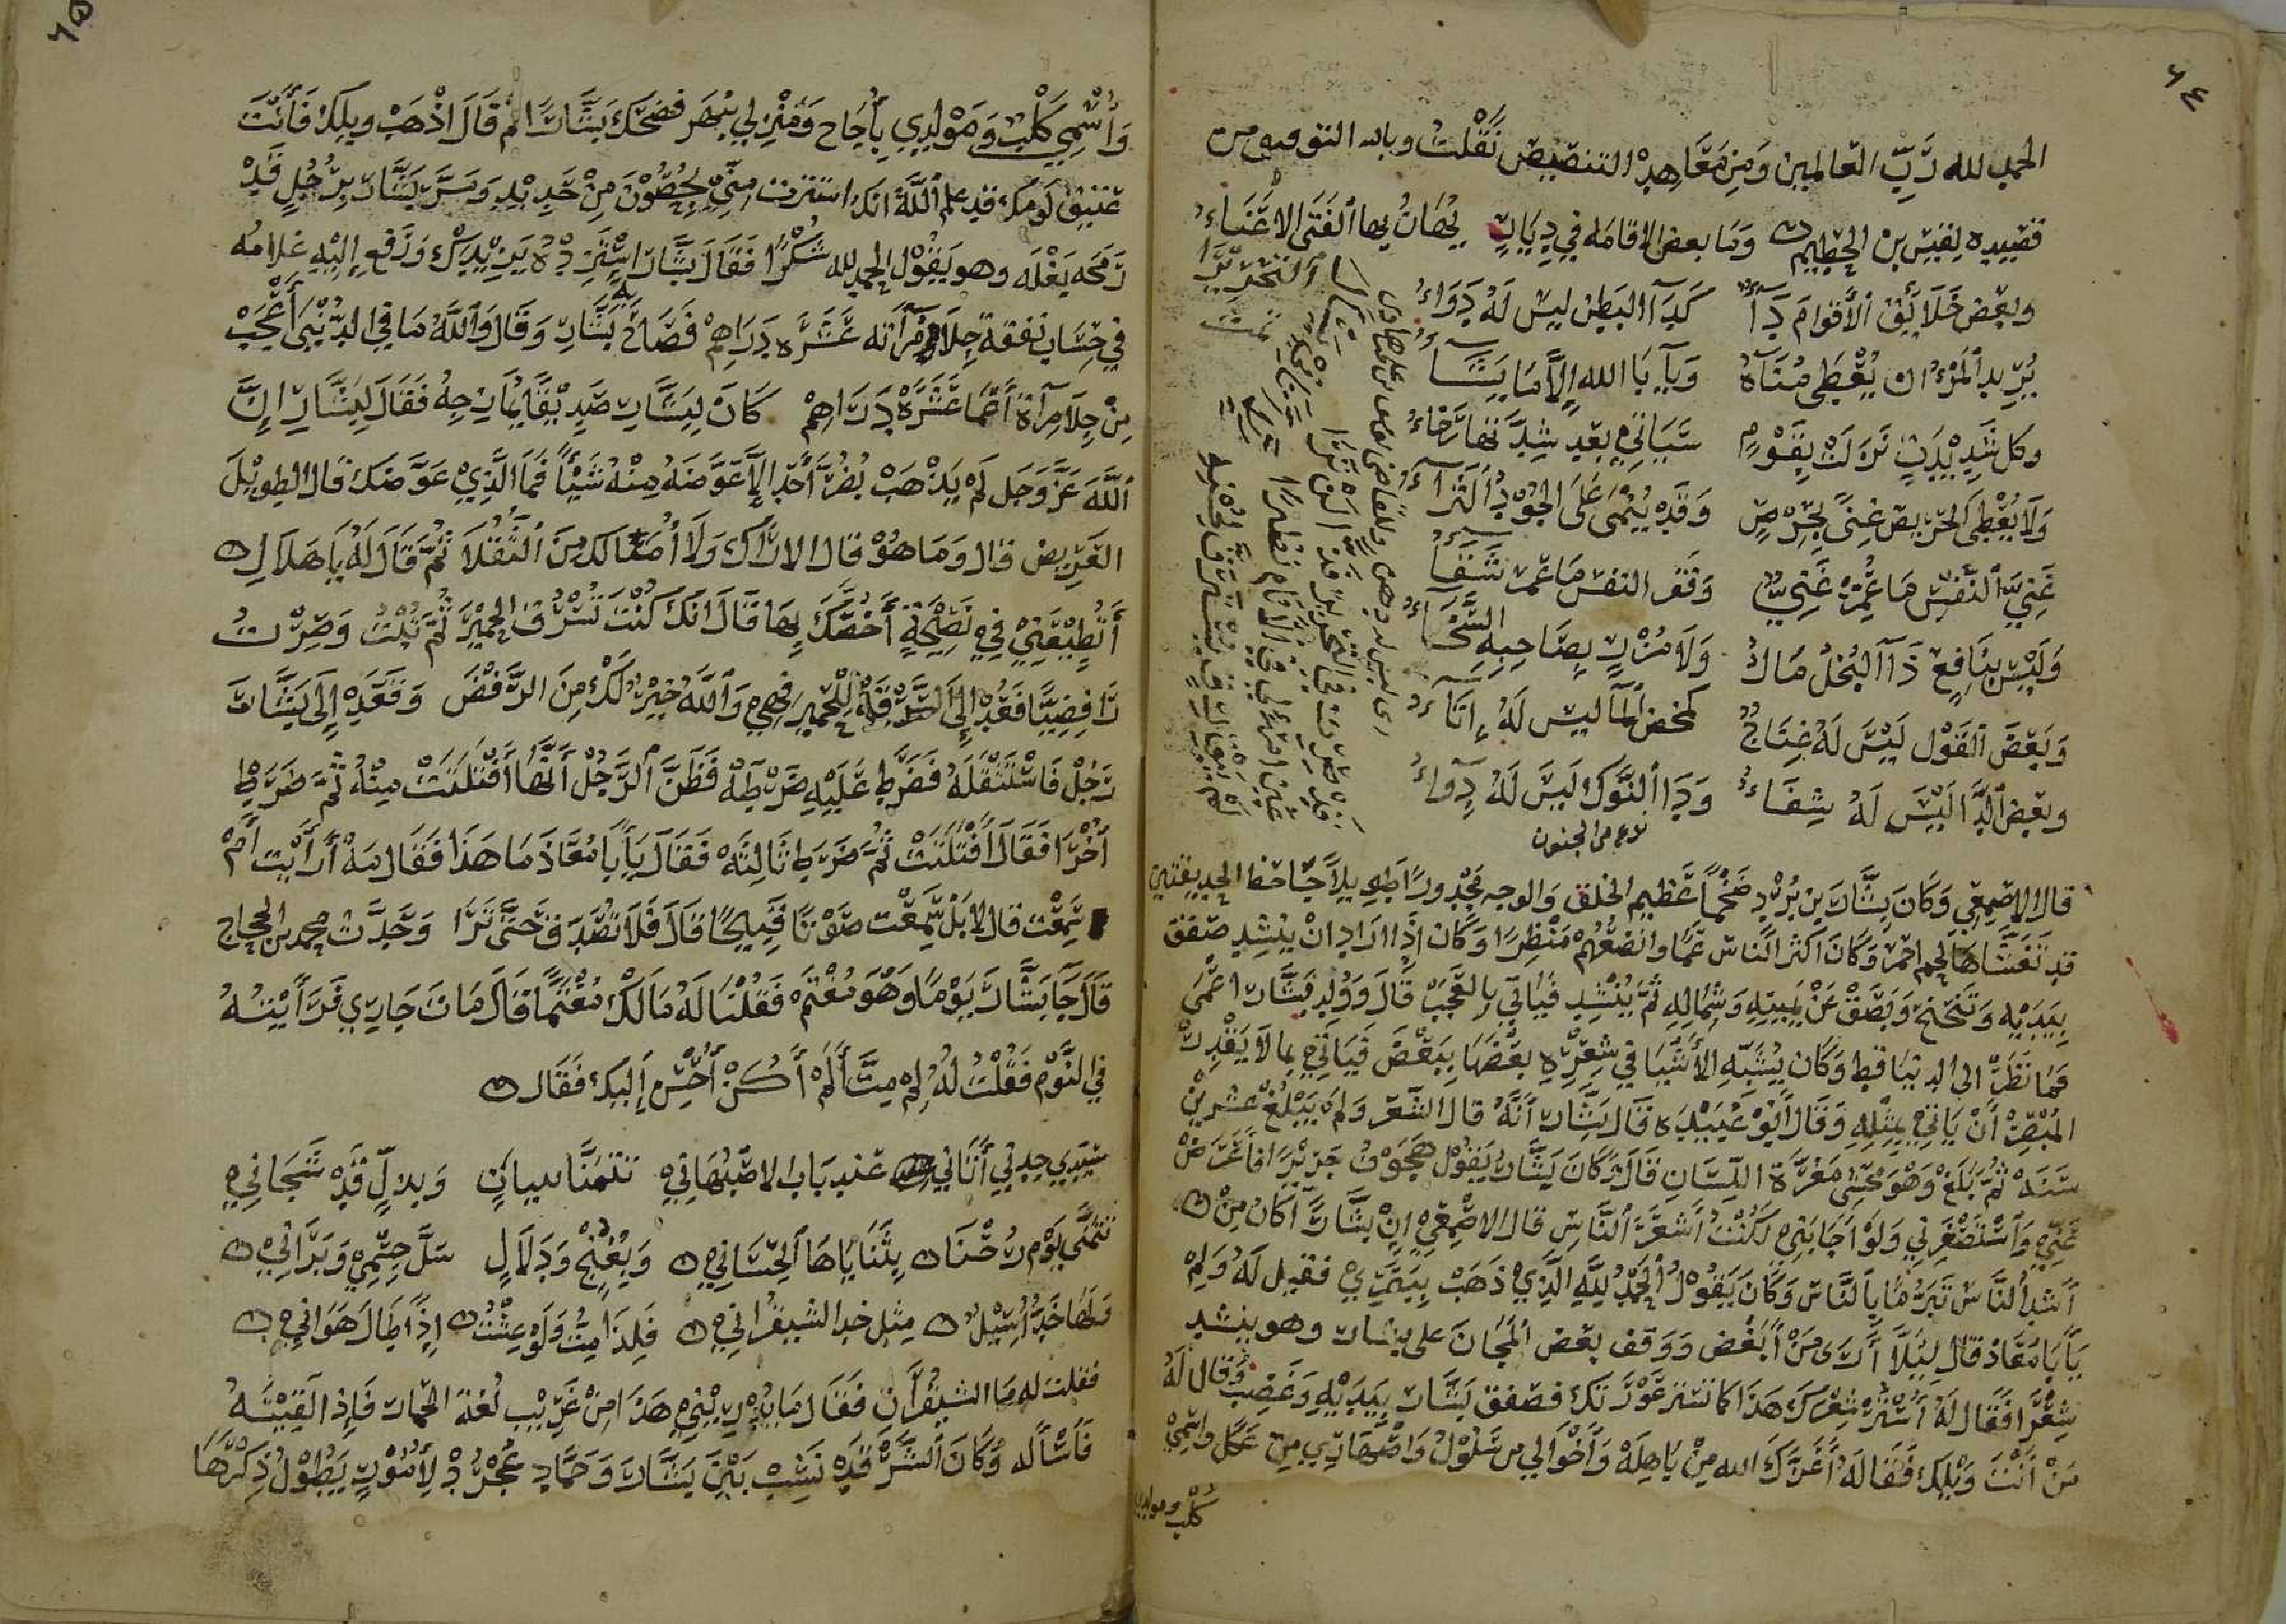 ٦٤
الحمد لله رب العالمين ومن معاهد التنصيص نقلت وبالله التوفيق من
قصيده لقيس بن الخطيم وما بعض الاقامه في ديار يهان بها الفتى الا عناء
وبعض خلائق الأقوام داء كداء البطن ليس له دواء
يريد المرء ان يعطى مناه ويابا الله إلا ما يشاء
وكل شديدة نزلت بقوم سياتي بعد شدتها رخاء
ولا يعطى الحريص غنى بحرص وقد ينمى على الجود الثراء
غني النفس ما عمر غني وفقر النفس ما عمر شقاء
وليس بنافع ذا البخل مال ولا مزر بصاحبه السخاء
وبعض القول ليس له عناج كمخض الما ليس له إتاء
وبعض الدا ليس له شفاء ودا النوك ليس له دواء
نوع من الجنون
قال الاصمعي وكان بشار بن برد ضخما عظيم الخلق والوجه مجدورا طويلا جاحظ الحديقتين
قد تغشاها لحم احمر وكان اكثر الناس عما وافضعهم منظرا وكان اذا اراد ان ينشد صفق
بيديه وتنحنح وبصق عن يمينه وشماله ثم ينشد فياتي بالعجب قال وولد بشار اعمى
فما نظر الى الدنيا قط وكان يشبه الأشيا في شعره بعضها ببعض فياتي بما لا يقدر
المبصر أن ياتي بمثله وقال أبو عبيده قال بشار أنه قال الشعر ولم يبلغ عشرين
سنه ثم بلغ وهو مخشى معرة اللسان قال وكان بشار يقول هجوت جريرا فاعرض
عني واستصغرني ولو اجابني لكنت أشعر الناس قال الاصمعي إن بشارا كان من
أشد الناس تبرما بالناس وكان يقول الحمد لله الذي ذهب ببصري فقيل له ولم
يابا معاذ قال ليلا أرى من أبغض ووقف بعض المجان على بشار وهو ينشد
شعرا فقال له أستر شعرك هذا كما تستر عورتك فصفق بشار بيديه وغضب وقال له
من أنت ويلك فقال له أعزك الله من باهله وأخوالي من سلول واصهاري من عكل واسمي
كلب ومولدي
٦٥
وأسمي كلب ومولدي بأجاح ومنزلي بنهر فضحك بشار ثم قال اذهب ويلك فأنت
عتيق لومك قد علم الله انك استترت مني بحصون من حديد ومر بشار برجل قد
رمحه بغله وهو يقول الحمد لله شكرا فقال بشار استزده يزيدك ورفع إليه غلامه
في حساب نفقة جلا مرآته عشره دراهم فصاح به بشار وقال والله ما في الدنيا أعجب
من جلا مرآة أعما عشره دراهم كان لبشار صديقا يمازحه فقال لبشار إن
الله عز وجل لم يذهب بصر أحد إلا عوضه منه شيئا فما الذي عوضك قال الطويل
العريض قال وما هو قال الا أراك ولا أمثالك من الثقلا ثم قال له يا هلال
أتطيعني في نصيحة أخصك بها قال انك كنت تسرق الحمير ثم تبت وصرت
رافضيا فعد إلى السرقة للحمير فهي والله خير لك من الرفض وقعد إلى بشار
رجل فاستثقله فضرط عليه ضرطه فظن الرجل أنها أفتلتت منه ثم ضرط
أخرا فقال أفتلتت ثم ضرط ثالثه فقال يابا معاذ ما هذا فقال مه أرأيت أم
سمعت قال لا بل سمعت صوتا قبيحا قال فلا تصدق حتى ترا وحدث محمد بن الحجاج
قال جا بشار يوما وهو مغتم فقلنا له مالك مغتما قال مات حاري فرأيته
في النوم فقلت له لم مت ألم أكن أحسن إليك فقال
سيدي جدبي أتاني عند باب الاصبهاني تتمنا ببنان وبدل قد شجاني
تتمنى يوم رحنا بثناياها الحساني وبغنج ودلال سل جسمي وبراني
ولها خد أسيل مثل خد الشيفراني فلذا مت ولو عشت إذا طال هواني
فقلت له ما الشيفران فقال ما يدريني هذا من غريب لغة الحمار فإذا لقيته
فأسأله وكان الشر قد نشب بين بشار وحماد عجرد لأمور يطول ذكرها